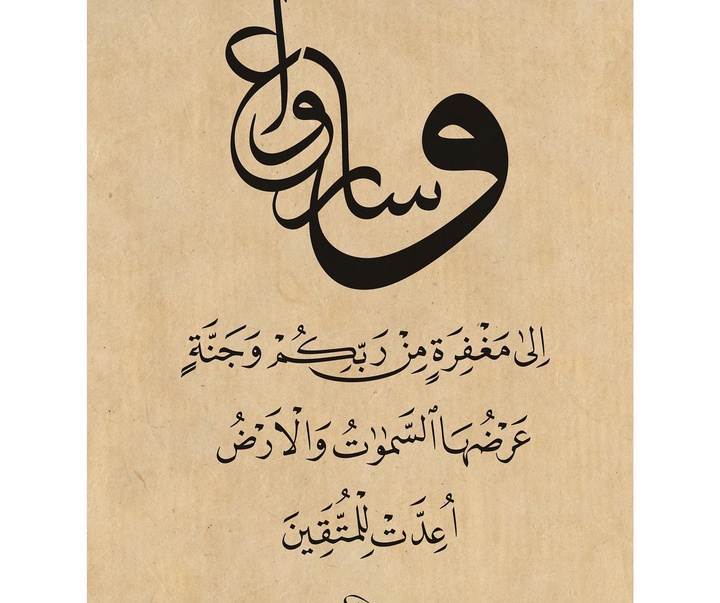 وسارعوا
اِلىٰ مَغْفِرَةٍ مِنْ رَبِّكُمْ وَجَنَّةٍ
عَرْضُهَا ٱلسَّمٰوٰتُ وَالْاَرْضُ
اُعِدَّتْ لِلْمُتَّقِينَ